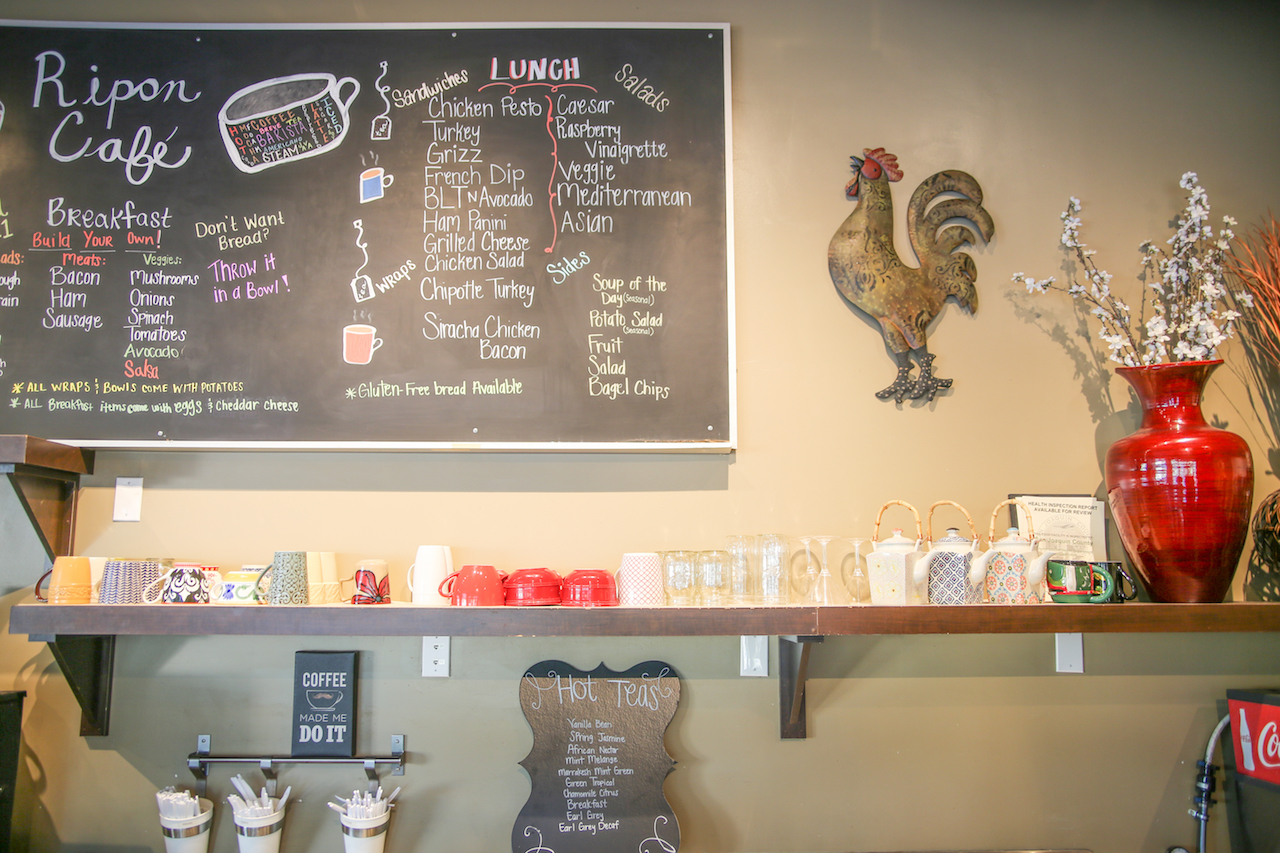 Ripon
Café
Breakfast
Build Your Own!
Meats:
Bacon
Ham
Sausage
Veggies:
Mushrooms
Onions
Spinach
Tomatoes
Avocado
Salsa
Don't Want
Bread?
THROW iT
in a Bowl!
* ALL WRAPS & BOWLS COME WITH POTATOES
* ALL BreakFast items come with eggs & cheddar cheese
COFFEE
BARISTA
AMERICANO
STEAM
LUNCH
Sandwiches
Chicken Pesto
Turkey
Grizz
French Dip
BLT N Avocado
Ham Panini
Grilled Cheese
Chicken Salad
Wraps
Chipotle Turkey
Siracha Chicken
Bacon
* Gluten-Free bread Available
Salads
Caesar
Raspberry
Vinaigrette
Veggie
Mediterranean
Asian
Sides
Soup of the
Day (Seasonal)
Potato Salad
(Seasonal)
Fruit
Salad
Bagel Chips
HEALTH INSPECTION REPORT
AVAILABLE FOR REVIEW
COFFEE
MADE ME
DO IT
Hot Teas
Vanilla Bean
Spring Jasmine
African Nectar
Mint Melange
Marrakesh Mint Green
Green Tropical
Chamomile Citrus
Breakfast
Earl Grey
Earl Grey Decaf